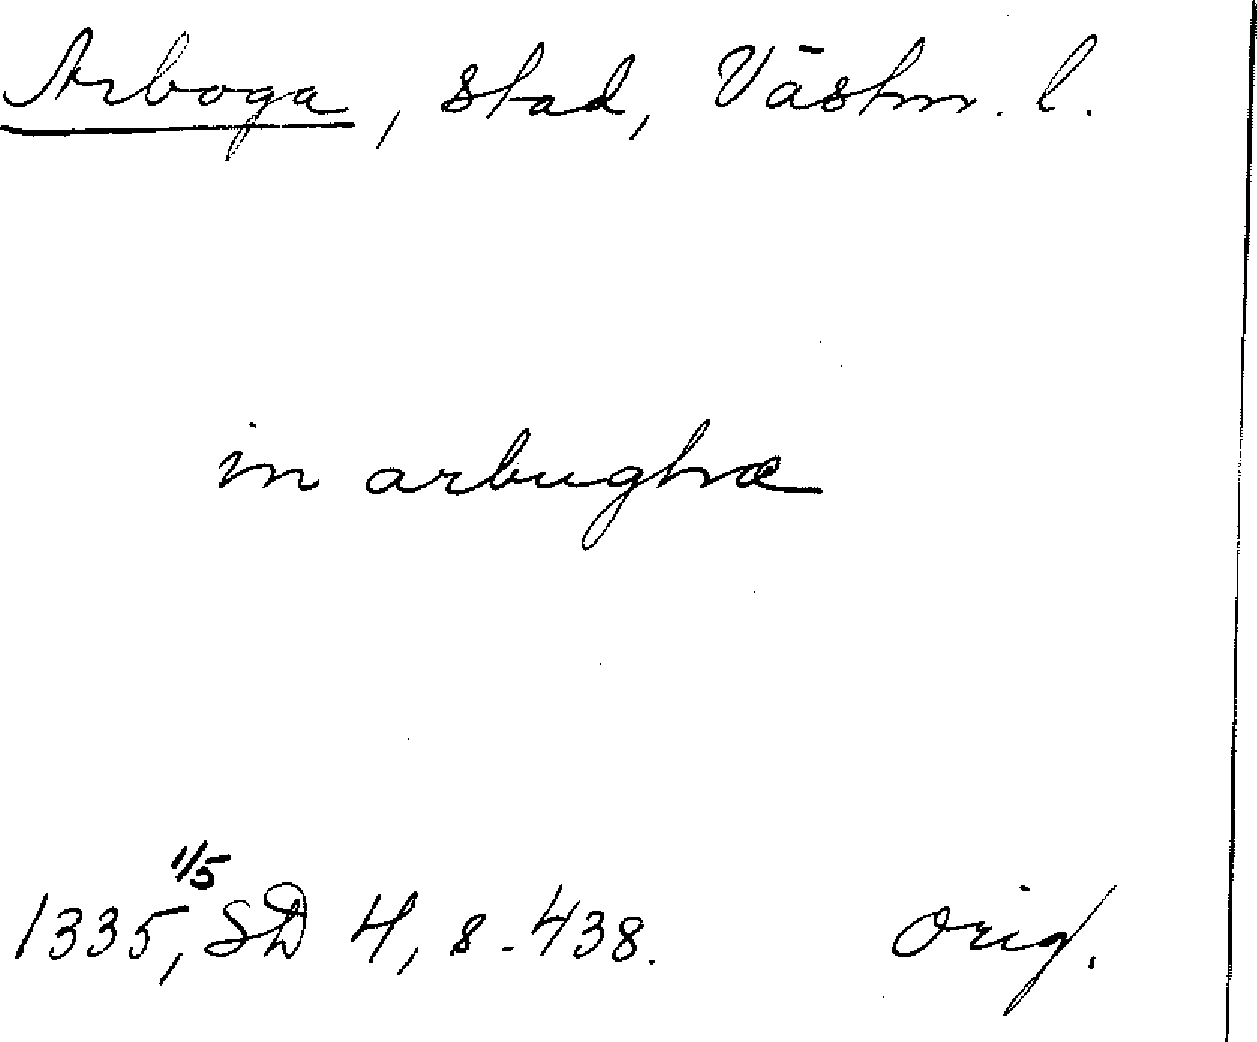 Arboga, stad, Västm. l.
in arbughæ
1335 1/5, SD 4, s. 438. Orig.